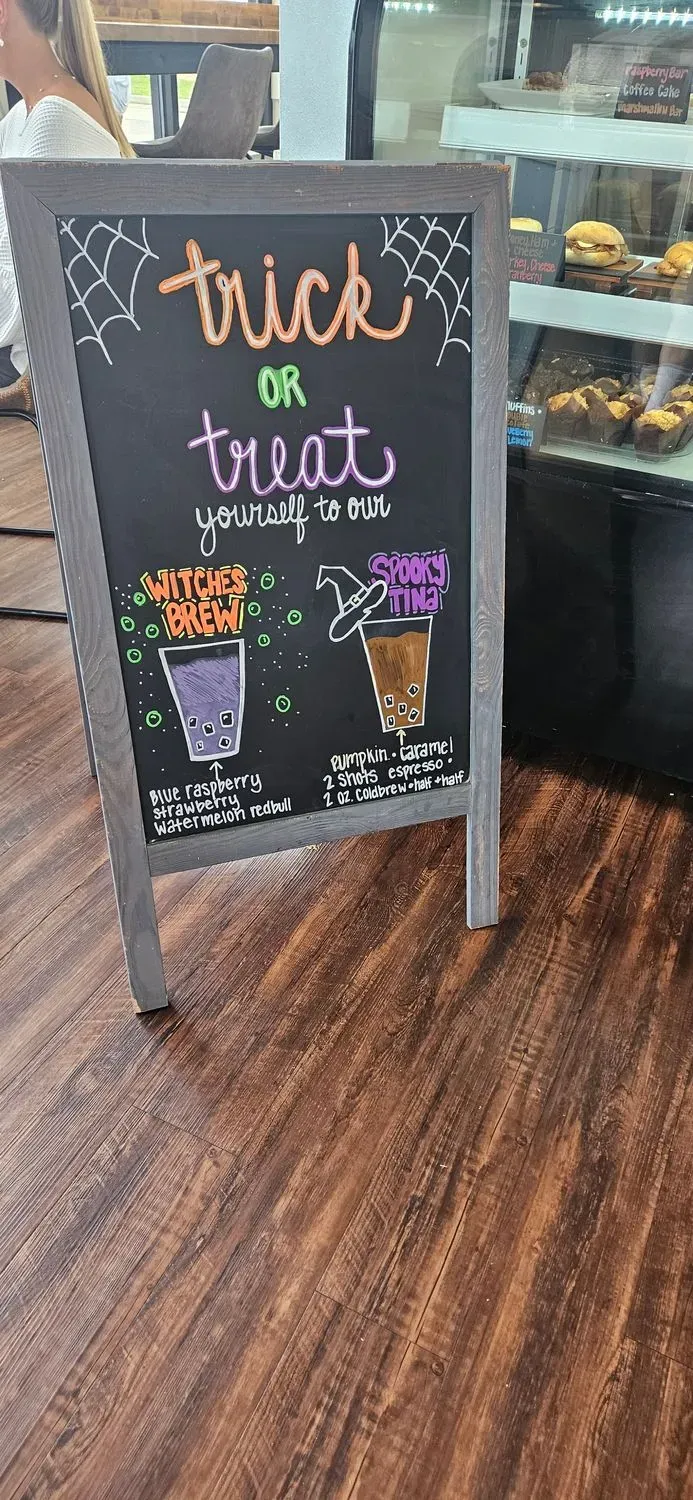 trick
OR
treat
yourself to our
WITCHES
BREW
SPOOKY
TINA
Blue raspberry
strawberry
watermelon redbull
pumpkin • caramel
2 shots espresso •
2 oz. coldbrew • half + half
Raspberry Bar
Coffee Cake
Marshmallow Bar
Ham +
cheese
Cheese
muffins •
lemon